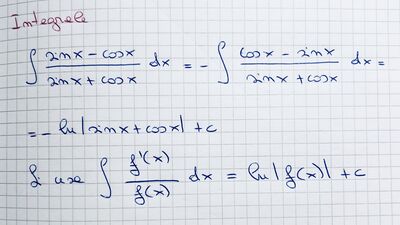 Integrale
∫ (sinx - cosx)/(sinx + cosx) dx = - ∫ (cosx - sinx)/(sinx + cosx) dx =
= - ln|sinx + cosx| + c
Si use ∫ f'(x)/f(x) dx = ln|f(x)| + c